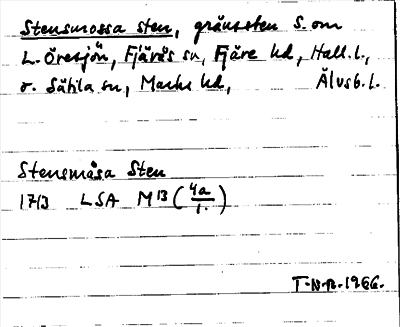 Stensmossa sten, gränssten S. om
L. Öresjön, Fjärås sn, Fjäre hd, Hall. l.,
o. Sätila sn, Marks hd, Älvsb. l.
Stensmåsa Sten
1713 LSA M 13 (4a/1.)
T.N.R. 1966.